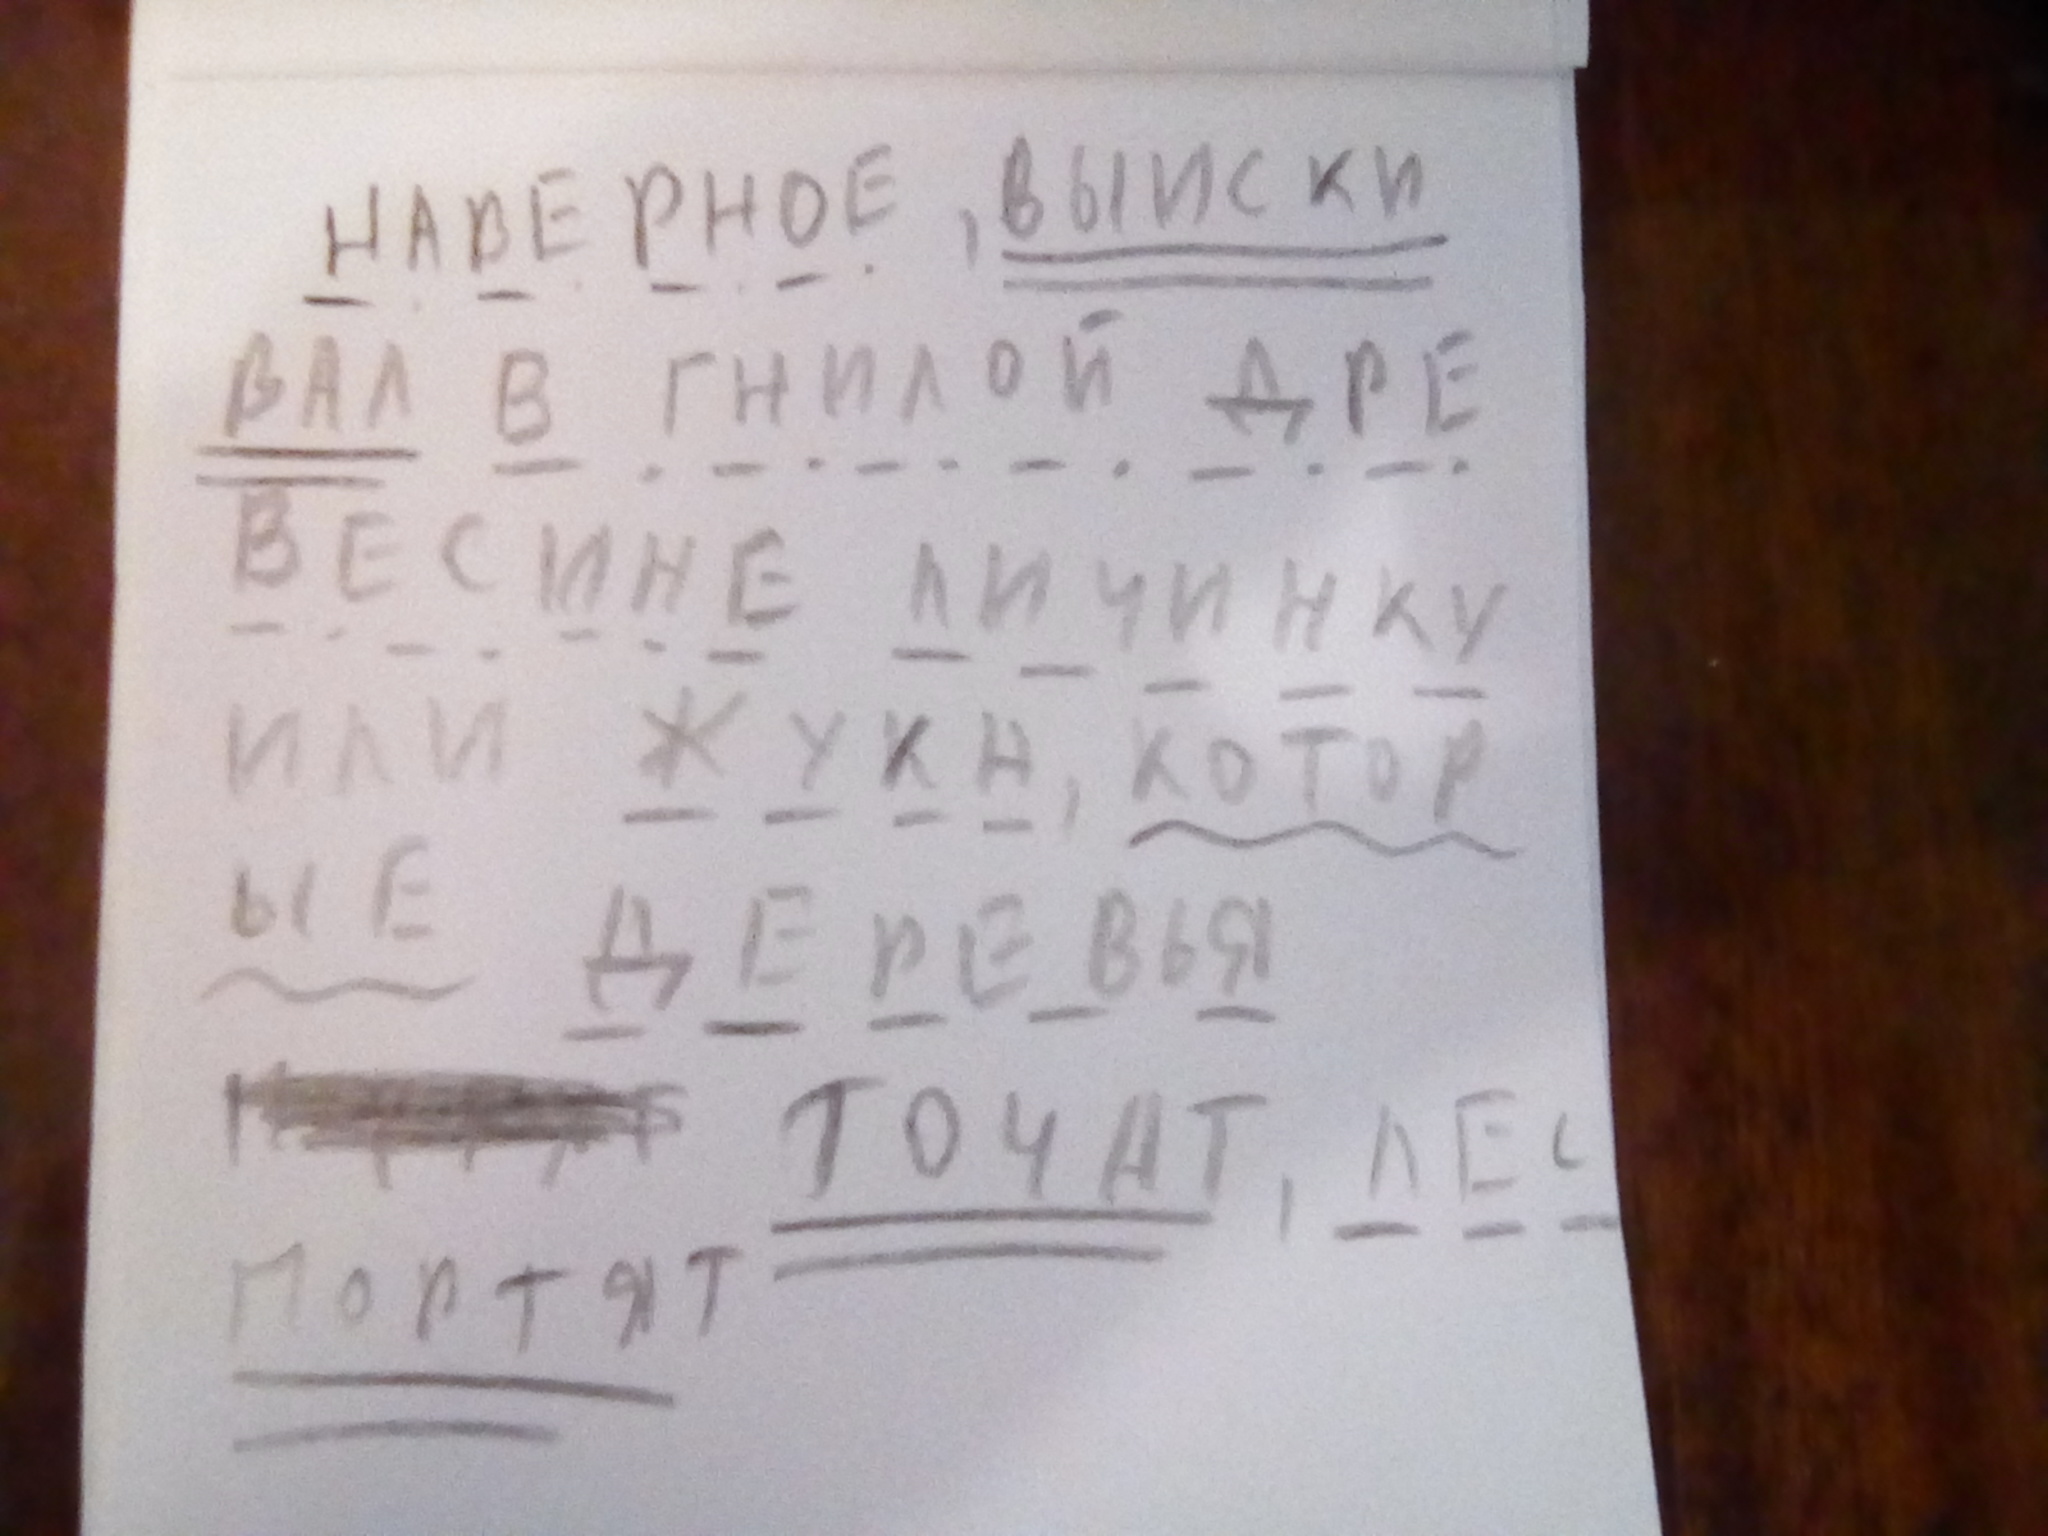 НАВЕРНОЕ, ВЫИСКИ
ВАЛ В ГНИЛОЙ ДРЕ
ВЕСИНЕ ЛИЧИНКУ
ИЛИ ЖУКИ, КОТОР
ЫЕ ДЕРЕВЬЯ
ТОЧАТ, ЛЕС
ПОРТЯТ